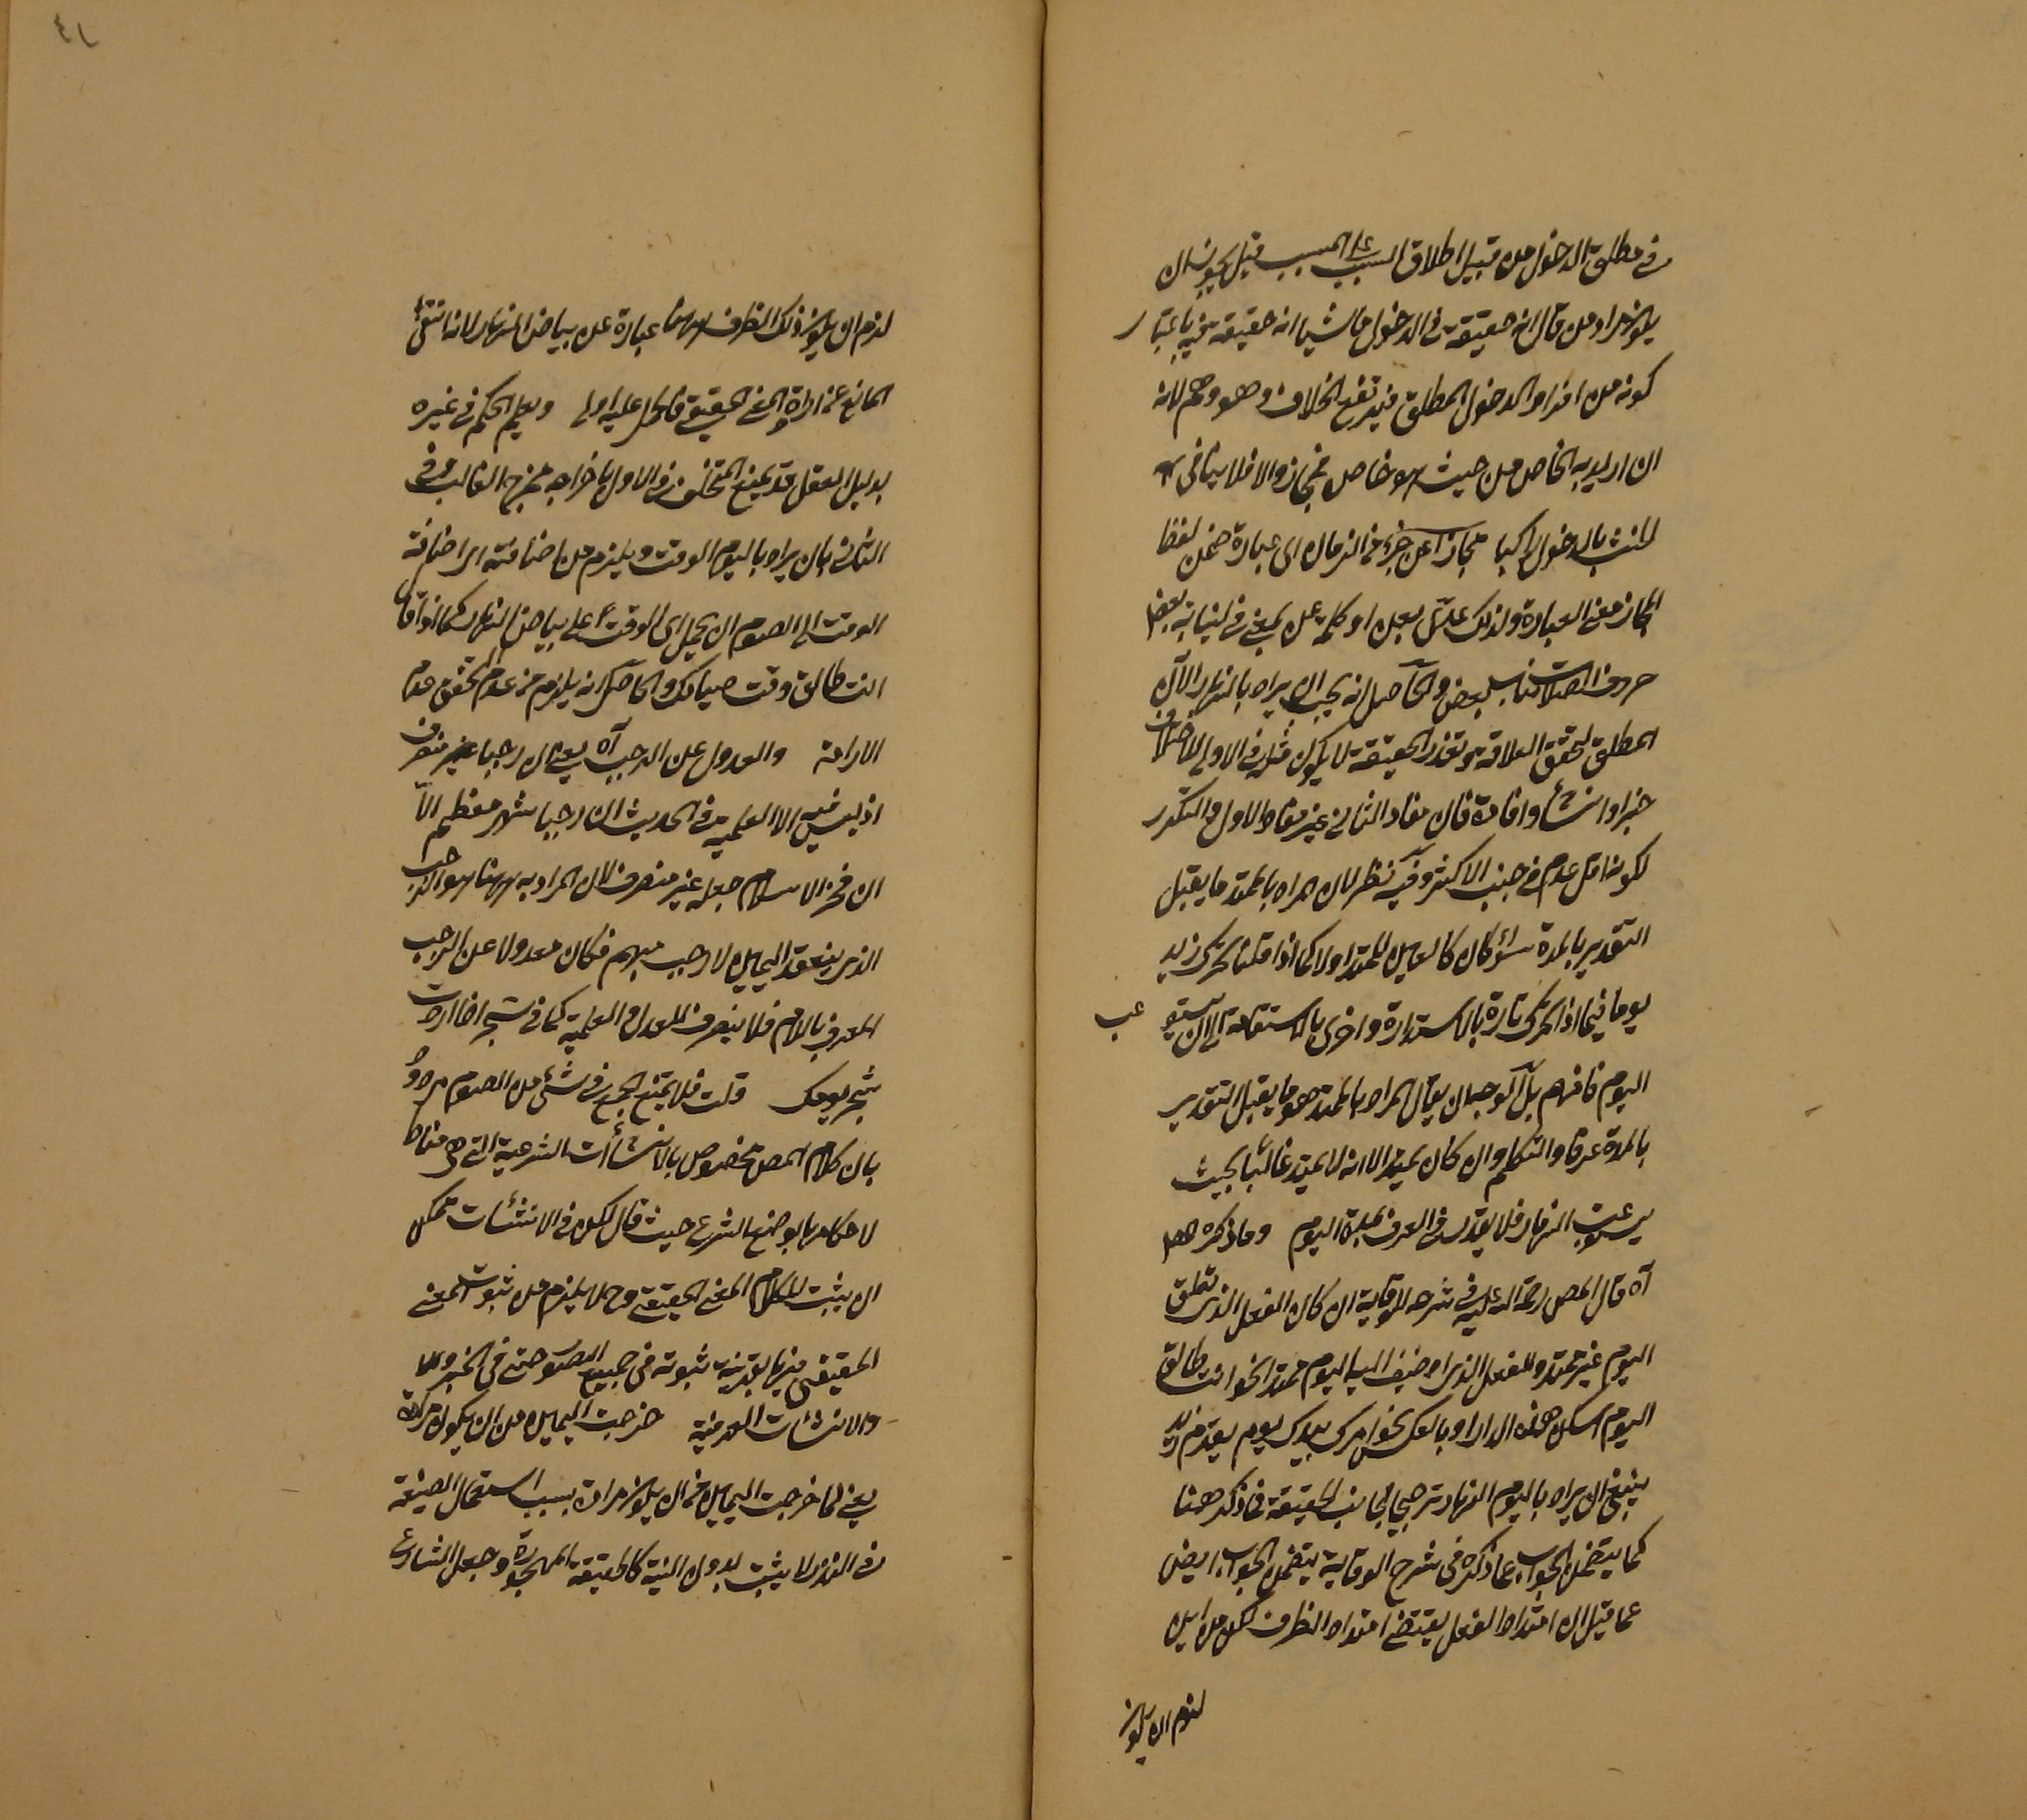 في مطلق الدخول من قبيل اطلاق السبب على المسبب قيل يجوز ان
يكون مراد من قال انه حقيقة في الدخول ماشيا انه حقيقة فيه باعتبار
كونه من افراد الدخول المطلق فيرتفع الخلاف وهو وهم لانه
ان اريد به الخاص من حيث هو خاص فمجاز والا فلا ينافي
الحنث بالدخول راكبا مجازا عن جزء من الزمان اى عبارة ضمن لفظ
المجاز معنى العبارة ولذلك علق بعن او كلمة عن بمعنى في لنيابة بعض
حروف الصلات مناب بعض والحاصل انه يجب ان يراد بالنهار الآن
المطلق لتحقق العلاقة وتعذر الحقيقة لا يكون مثله في الاولى لاختلاف
خبرا وانشأ وافادة فان مفاد الثاني غير مفاد الاول والتكرر
لكونه اقل عدم في جنب الاكثر وفيه نظر لان المراد بالممتد ما يقبل
التقدير بالمدة سواء كان كاليمين للممتد اولا كما اذا قلنا تحرك زيد
يوما فيما اذا تحرك تارة بالاستدارة واخرى بالاستقامة الى ان يستوعب
اليوم فافهم بل الوجه ان يقال المراد بالممتد هو ما يقبل التقدير
بالمدة عرفا والتكلم وان كان يمتد الا انه لا يمتد غالبا بحيث
يستوعب النهار فلا يقدر في العرف بمدة اليوم وما ذكره
آه قال المص رحمة الله عليه في شرحه للوقاية ان كان الفعل الذي تعلق
اليوم غير ممتد والفعل الذى اضيف اليه اليوم ممتد انحو انت طالق
اليوم اسكن هذه الدار او بالعكس نحو امرك بيدك يوم يقدم زيد
ينبغي ان يراد باليوم النهار ترجيحا لجانب الحقيقة فما ذكر ههنا
كما يتضمن الجواب عما ذكره في شرح الوقاية يتضمن الجواب ايضا
عما قيل ان امتداد الفعل يقتضي امتداد الظرف لكن من اين
لزم ان يكون
٤١
لزم ان يكون ذلك الظرف ههنا عبارة عن بياض النهار لانه انتفى
المانع عن ارادة المعنى الحقيقي فالحمل عليه اولى ويعلم الحكم في غيره
بدليل العقل قد يمنع التخلف في الاول باخراجه مخرج الغالب وفي
الثاني بان يراد باليوم الوقت ويلزم من اضافته اى اضافة
الوقت الى الصوم ان يحمل اى الوقت على بياض النهار كما اذا قال
انت طالق وقت صيامك والحاصل انه يلزم من عدم التحقق عدم
الارادة والعدول عن الرجب آه يعني ان رجبا غير منصرف
اذ ليس فيه الا العلمية وفي الحديث ان رجبا شهر معظم الا
ان فخر الاسلام جعله غير منصرف لان المراد به ههنا هو الرجب
الذى ينعقد اليمين لا رجب مبهم فكان معدولا عن الرجب
المعرف باللام فلا ينصرف للعدل والعلمية كما في سحر اذا اردت
سحر يومك قلت فلا يمتنع الجمع في شئ من الصوم مردود
بان كلام المص مخصوص بالانشاآت الشرعية التي هي مناط
لاحكامها بوضع الشرع حيث قال لكن في الانشئات يمكن
ان يثبت للكلام المعنى الحقيقي وح لا يلزم من ثبوت المعنى
الحقيقي فيها بقرينة ثبوته في جميع الصور حتى في الخبر
والانشئات العرفية خرجت اليمين من ان يكون مرادة
يعني لما خرجت اليمين من ان يكون مرادة بسبب استعمال الصيغة
في النذر لا يثبت بدون النية كالحقيقة المهجورة وجعل الشارع